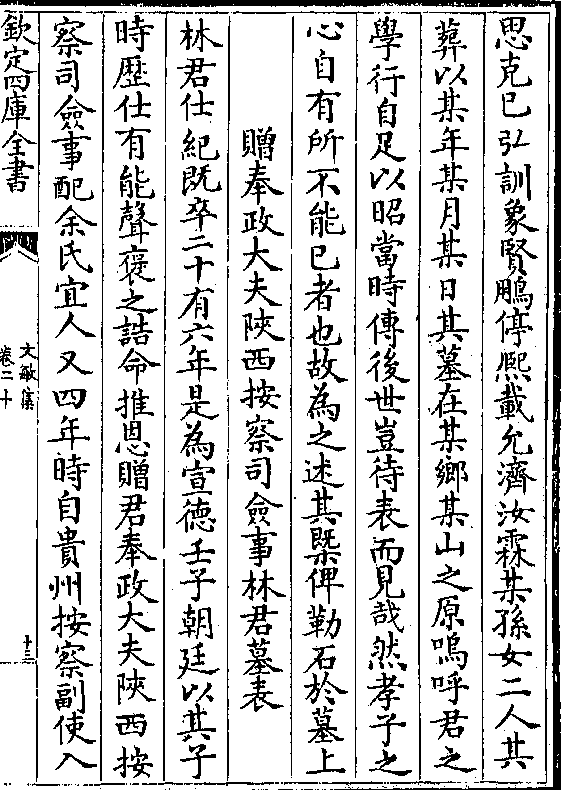 思克巳弘訓象賢鵬停熈載允濟汝霖其孫女二人其
葬以某年某月某日其墓在某鄉某山之原嗚呼君之
學行自足以昭當時傳後世豈待表而見哉然孝子之
心自有所不能巳者也故為之述其槩俾勒石於墓上
贈奉政大夫陜西按察司僉事林君墓表
林君仕紀既卒二十有六年是為宣德壬子朝廷以其子
時歴仕有能聲褒之誥命推恩贈君奉政大夫陜西按
察司僉事配余氏宜人又四年時自貴州按察副使入
欽定四庫全書
文敏集
卷二十
十三